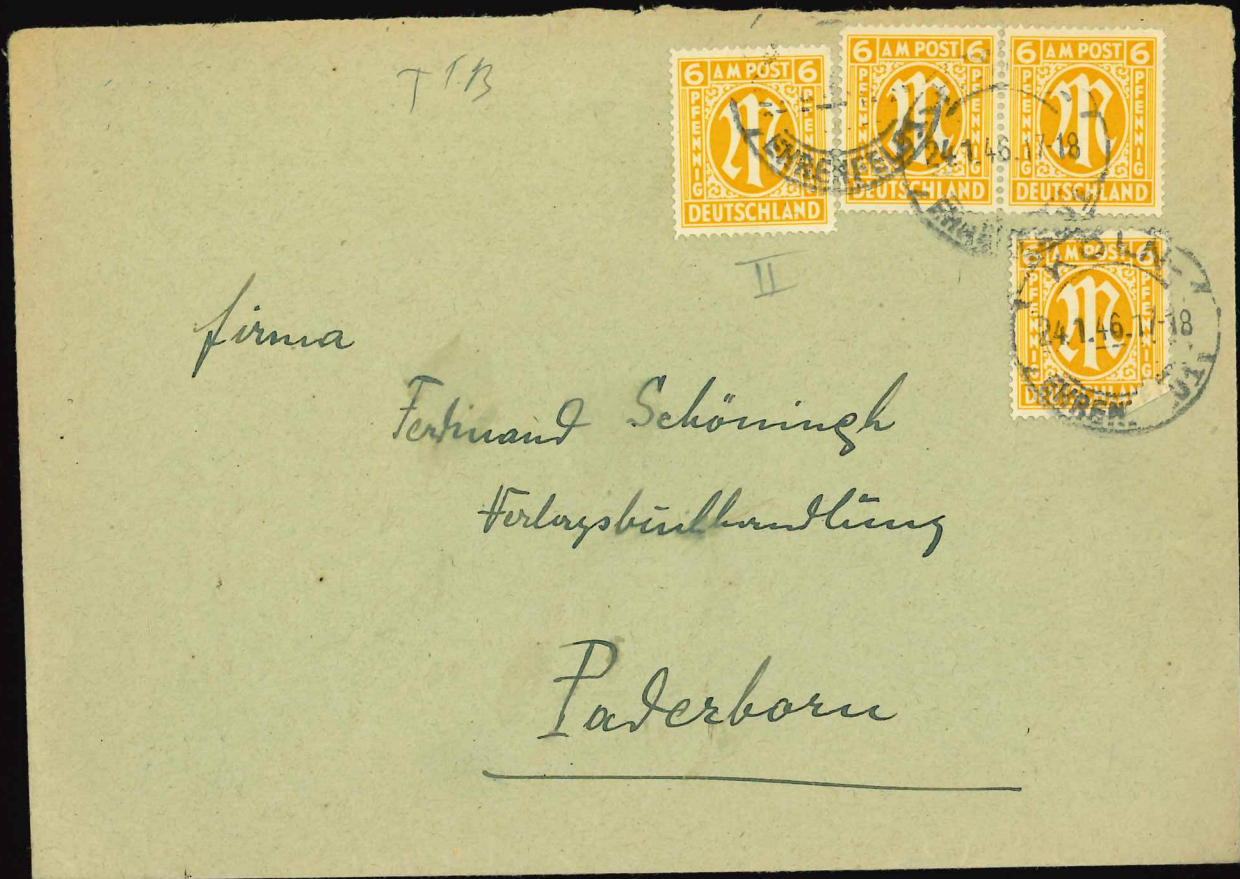 T 1.B
6 AM POST 6
PFENNIG PFENNIG
DEUTSCHLAND
6 AM POST 6
PFENNIG PFENNIG
DEUTSCHLAND
6 AM POST 6
PFENNIG PFENNIG
DEUTSCHLAND
EHRENFELD
24.1.46.17-18
6 AM POST 6
PFENNIG PFENNIG
DEUTSCHLAND
KÖLN-
24.1.46.17-18
EHREN
II
Firma
Ferdinand Schöningh
Verlagsbuchhandlung
Paderborn